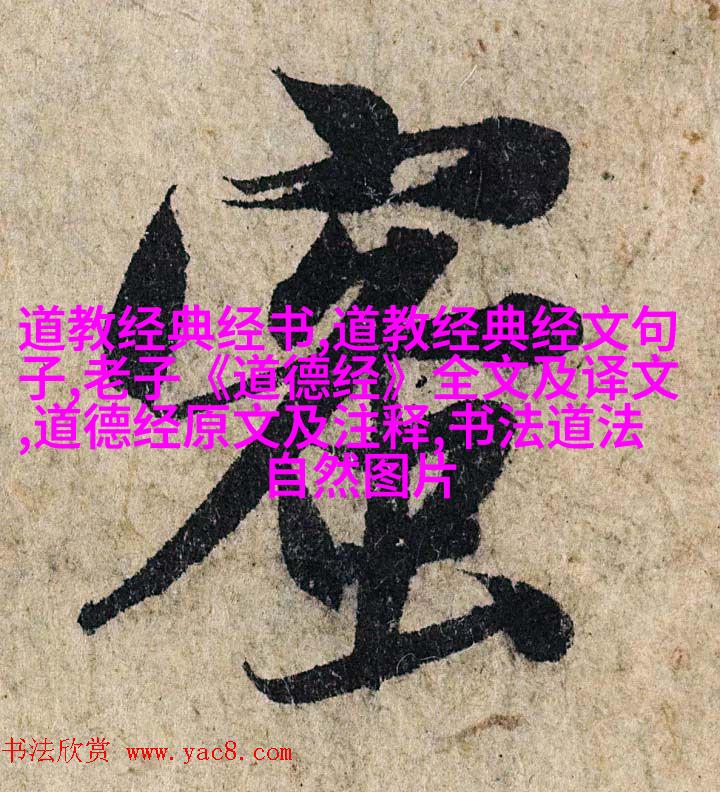 道教经典经书,道教经典经文句
子,老子《道德经》全文及译文
,道德经原文及注释,书法道法
自然图片
书法欣赏 www.yac8.com